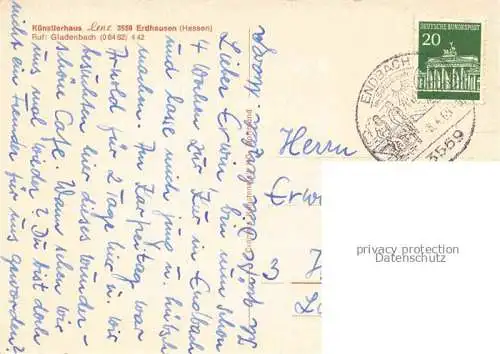 Künstlerhaus Lenz 3559 Erdhausen (Hessen)
Ruf: Gladenbach (0 64 62) 4 42
Lieber Erwin, bin nun schon
4 Wochen zur Kur in Endbach
und lasse mich jung u. hübsch
machen. Am Karfreitag war
Arnold für 2 Tage hier u. wir
besuchten hier dieses wunder-
schöne Café. Wann sehen wir
uns mal wieder? Du bist doch
nicht ein Fremder für uns geworden?
Herrn
Erwi
3
DEUTSCHE BUNDESPOST
20
ENDBACH
3569
privacy protection
Datenschutz